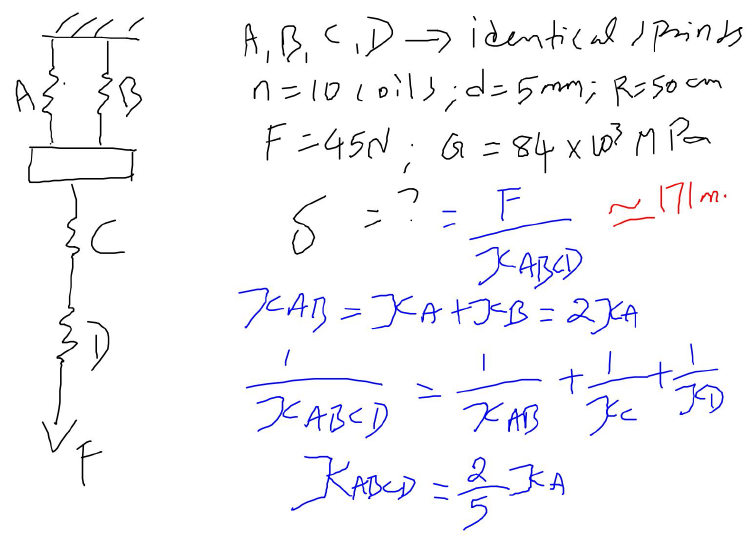 A, B, C, D → identical springs
n = 10 coils; d = 5mm; R = 50 cm
F = 45N; G = 84 × 10³ MPa
δ = ? = F / K_ABCD ≃ 171 m.
K_AB = K_A + K_B = 2K_A
1 / K_ABCD = 1 / K_AB + 1 / K_C + 1 / K_D
K_ABCD = 2/5 K_A
A
B
C
D
F